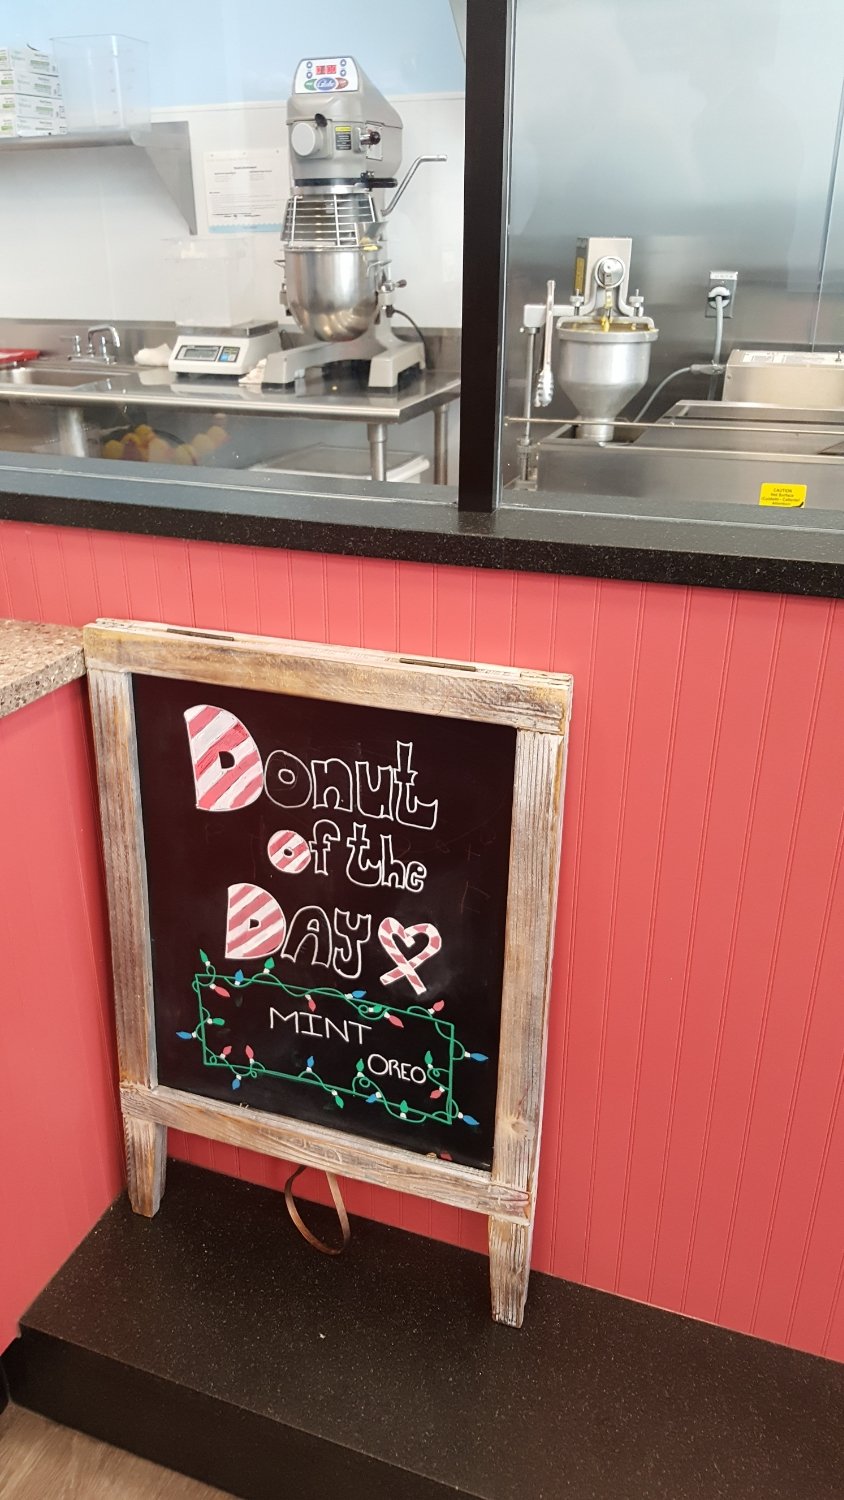 Globe
Donut
of the
DAY
MINT
OREO
CAUTION
Hot Surface